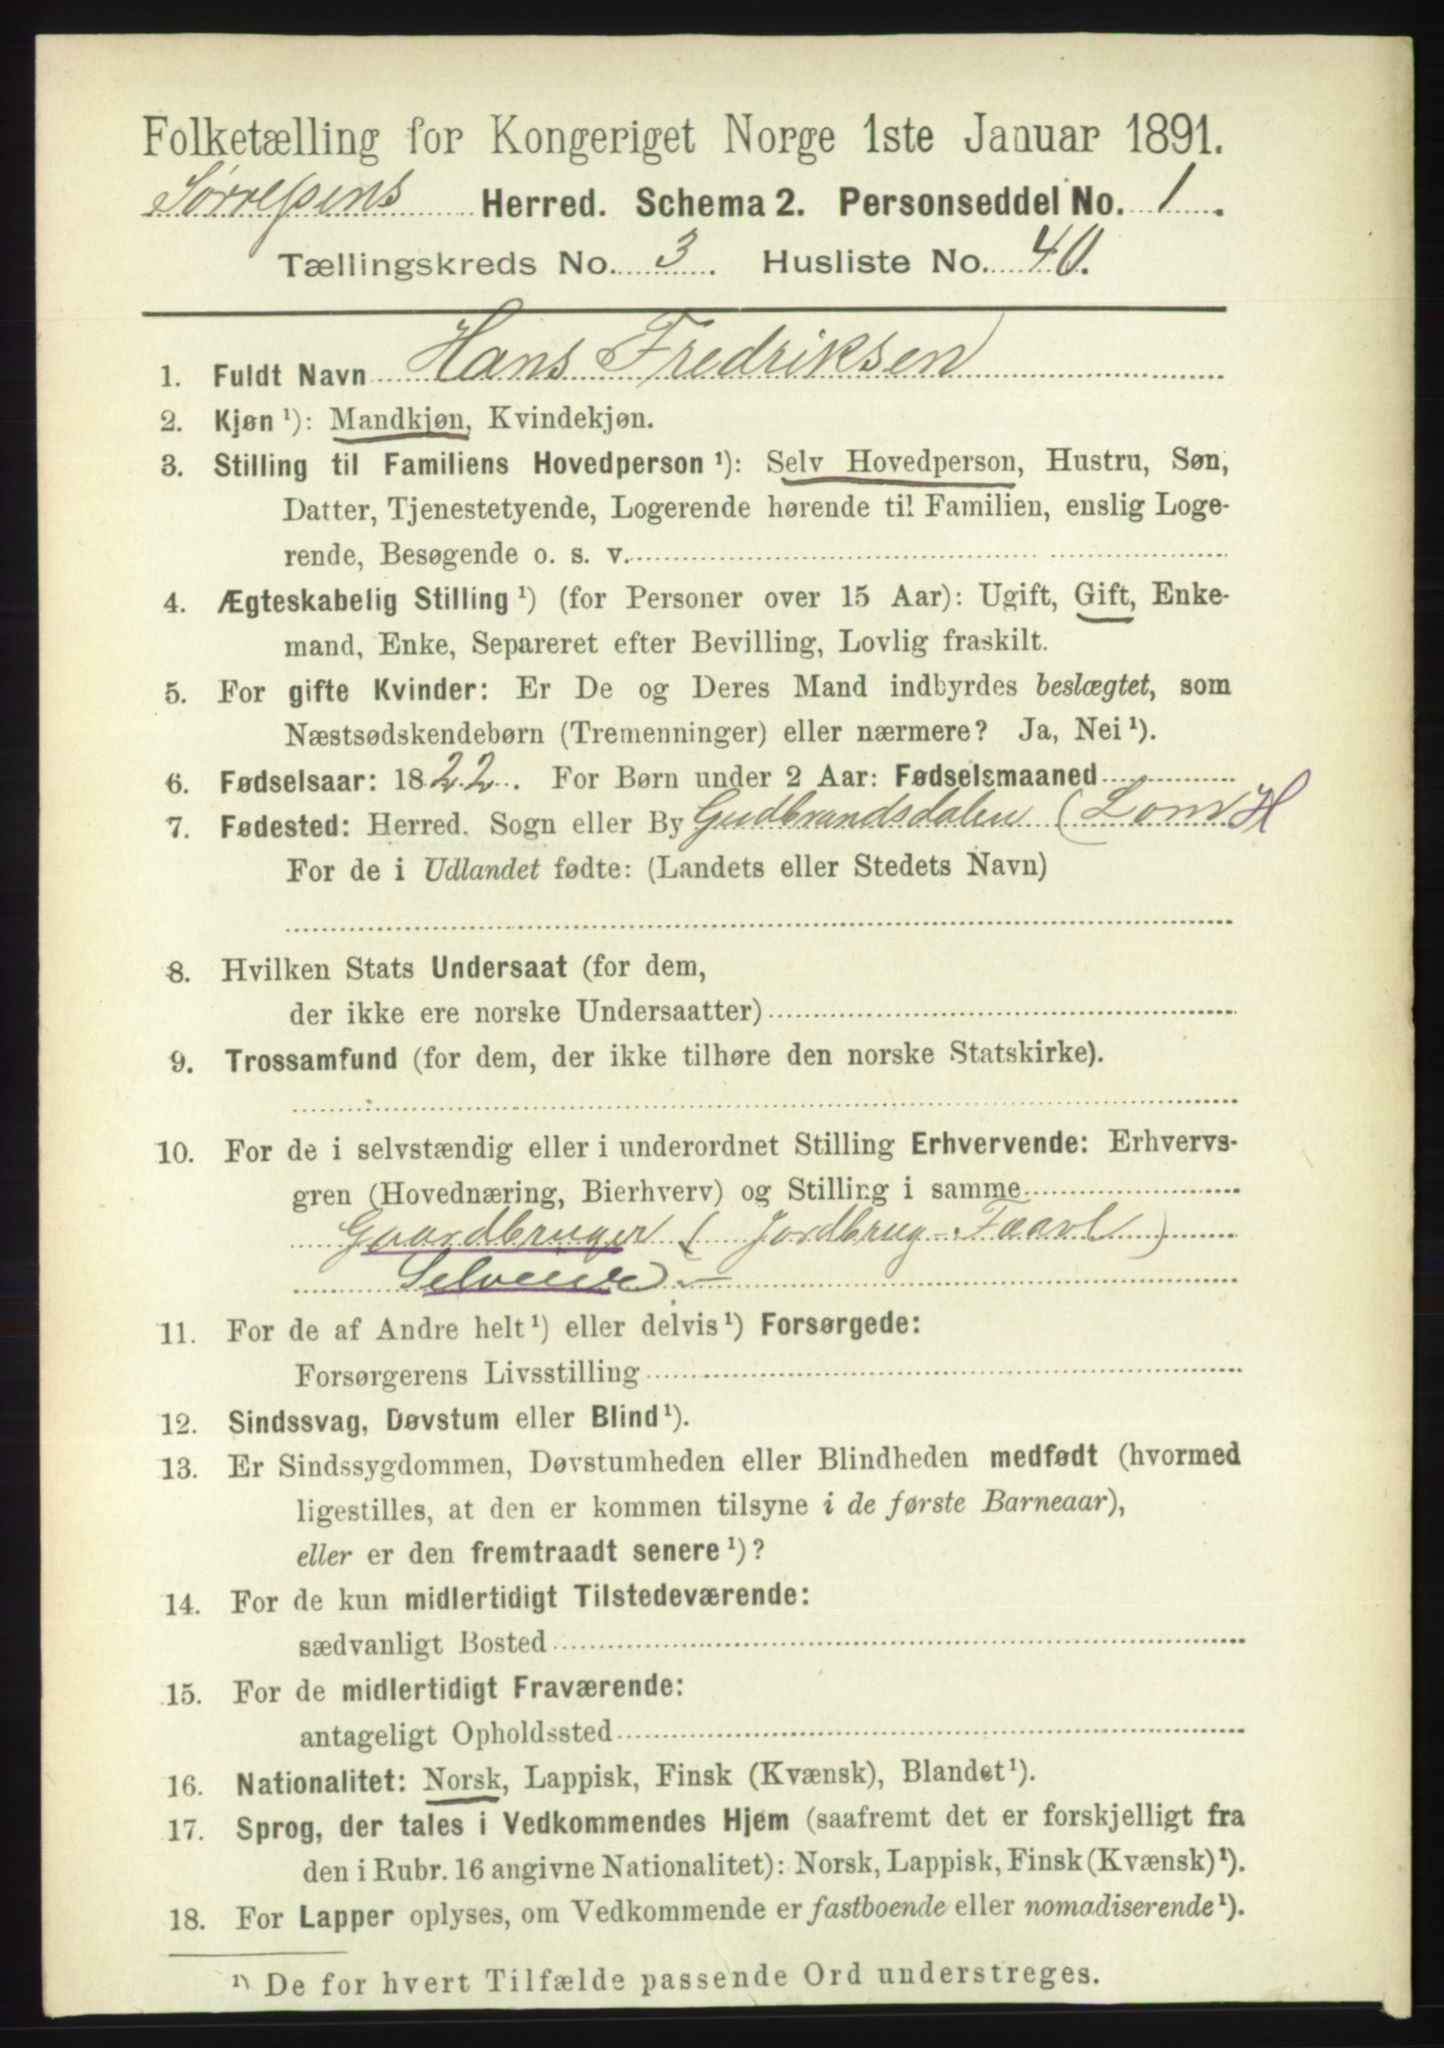 Folketælling for Kongeriget Norge 1ste Januar 1891.
Sørreisens Herred. Schema 2. Personseddel No. 1.
Tællingskreds No. 3. Husliste No. 40.
1. Fuldt Navn Hans Fredriksen
2. Kjøn ¹): Mandkjøn, Kvindekjøn.
3. Stilling til Familiens Hovedperson ¹): Selv Hovedperson, Hustru, Søn,
Datter, Tjenestetyende, Logerende hørende til Familien, enslig Loge-
rende, Besøgende o. s. v.
4. Ægteskabelig Stilling ¹) (for Personer over 15 Aar): Ugift, Gift, Enke-
mand, Enke, Separeret efter Bevilling, Lovlig fraskilt.
5. For gifte Kvinder: Er De og Deres Mand indbyrdes beslægtet, som
Næstsødskendebørn (Tremenninger) eller nærmere? Ja, Nei ¹).
6. Fødselsaar: 1822. For Børn under 2 Aar: Fødselsmaaned
7. Fødested: Herred. Sogn eller By Gudbrandsdalen (Lom H
For de i Udlandet fødte: (Landets eller Stedets Navn)
8. Hvilken Stats Undersaat (for dem,
der ikke ere norske Undersaatter)
9. Trossamfund (for dem, der ikke tilhøre den norske Statskirke).
10. For de i selvstændig eller i underordnet Stilling Erhvervende: Erhvervs-
gren (Hovednæring, Bierhverv) og Stilling i samme
Gaardbruger (Jordbrug-Faavl)
Selveier -
11. For de af Andre helt ¹) eller delvis ¹) Forsørgede:
Forsørgerens Livsstilling
12. Sindssvag, Døvstum eller Blind ¹).
13. Er Sindssygdommen, Døvstumheden eller Blindheden medfødt (hvormed
ligestilles, at den er kommen tilsyne i de første Barneaar),
eller er den fremtraadt senere ¹)?
14. For de kun midlertidigt Tilstedeværende:
sædvanligt Bosted
15. For de midlertidigt Fraværende:
antageligt Opholdssted
16. Nationalitet: Norsk, Lappisk, Finsk (Kvænsk), Blandet ¹).
17. Sprog, der tales i Vedkommendes Hjem (saafremt det er forskjelligt fra
den i Rubr. 16 angivne Nationalitet): Norsk, Lappisk, Finsk (Kvænsk) ¹).
18. For Lapper oplyses, om Vedkommende er fastboende eller nomadiserende ¹).
¹) De for hvert Tilfælde passende Ord understreges.